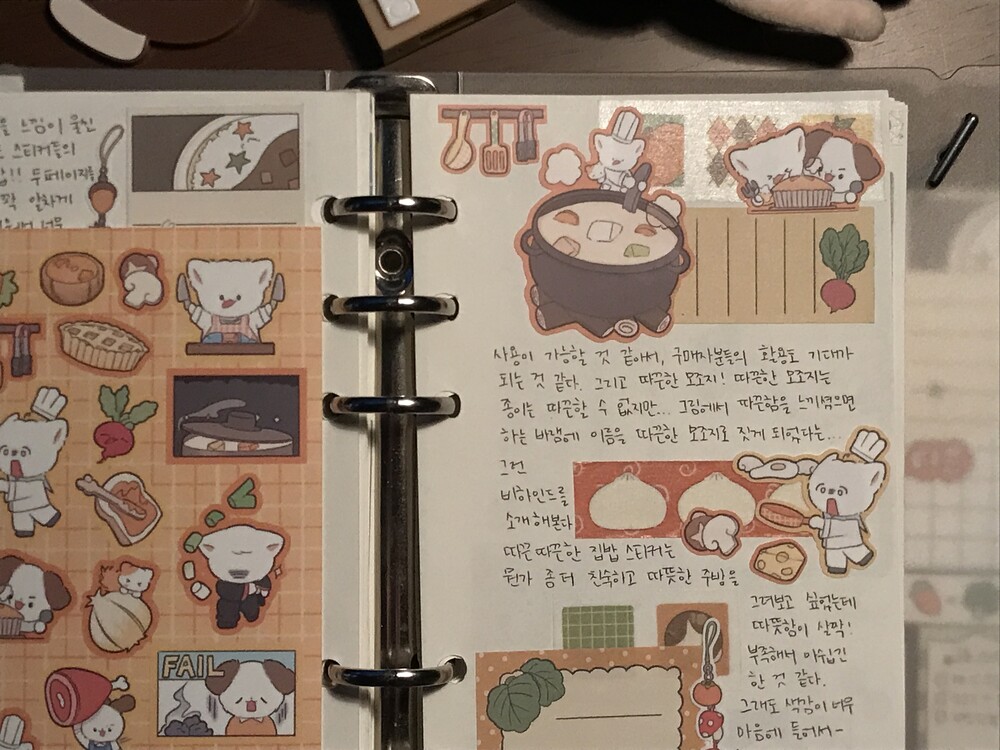 느낌이 물씬
스티커들의
두페이지를
알차게
너무
FAIL
사용이 가능할 것 같아서, 구매자분들의 활용도 기대가
되는 것 같다. 그리고 따끈한 모조지! 따끈한 모조지는
종이는 따끈할 수 없지만... 그림에서 따끈함을 느끼셨으면
하는 바램에 이름을 따끈한 모조지로 짓게 되었다는...
그런
비하인드를
소개해본다
따끈따끈한 집밥 스티커는
뭔가 좀 더 친숙하고 따뜻한 주방을
그려보고 싶었는데
따뜻함이 살짝!
부족해서 아쉽긴
한 것 같다.
그래도 색감이 너무
마음에 들어서~